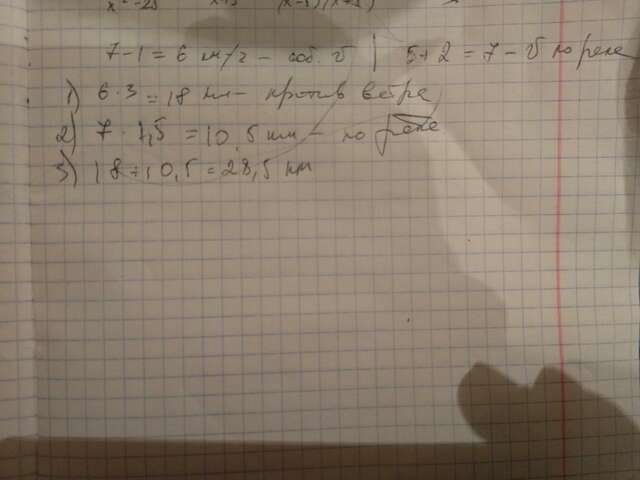 x² - 25 x+5 (x-5)(x+5)
7-1 = 6 км/ч - соб. v | 5+2 = 7 - v по реке
1) 6·3 = 18 км - против ветра
2) 7·1,5 = 10,5 км - по реке
3) 18+10,5 = 28,5 км